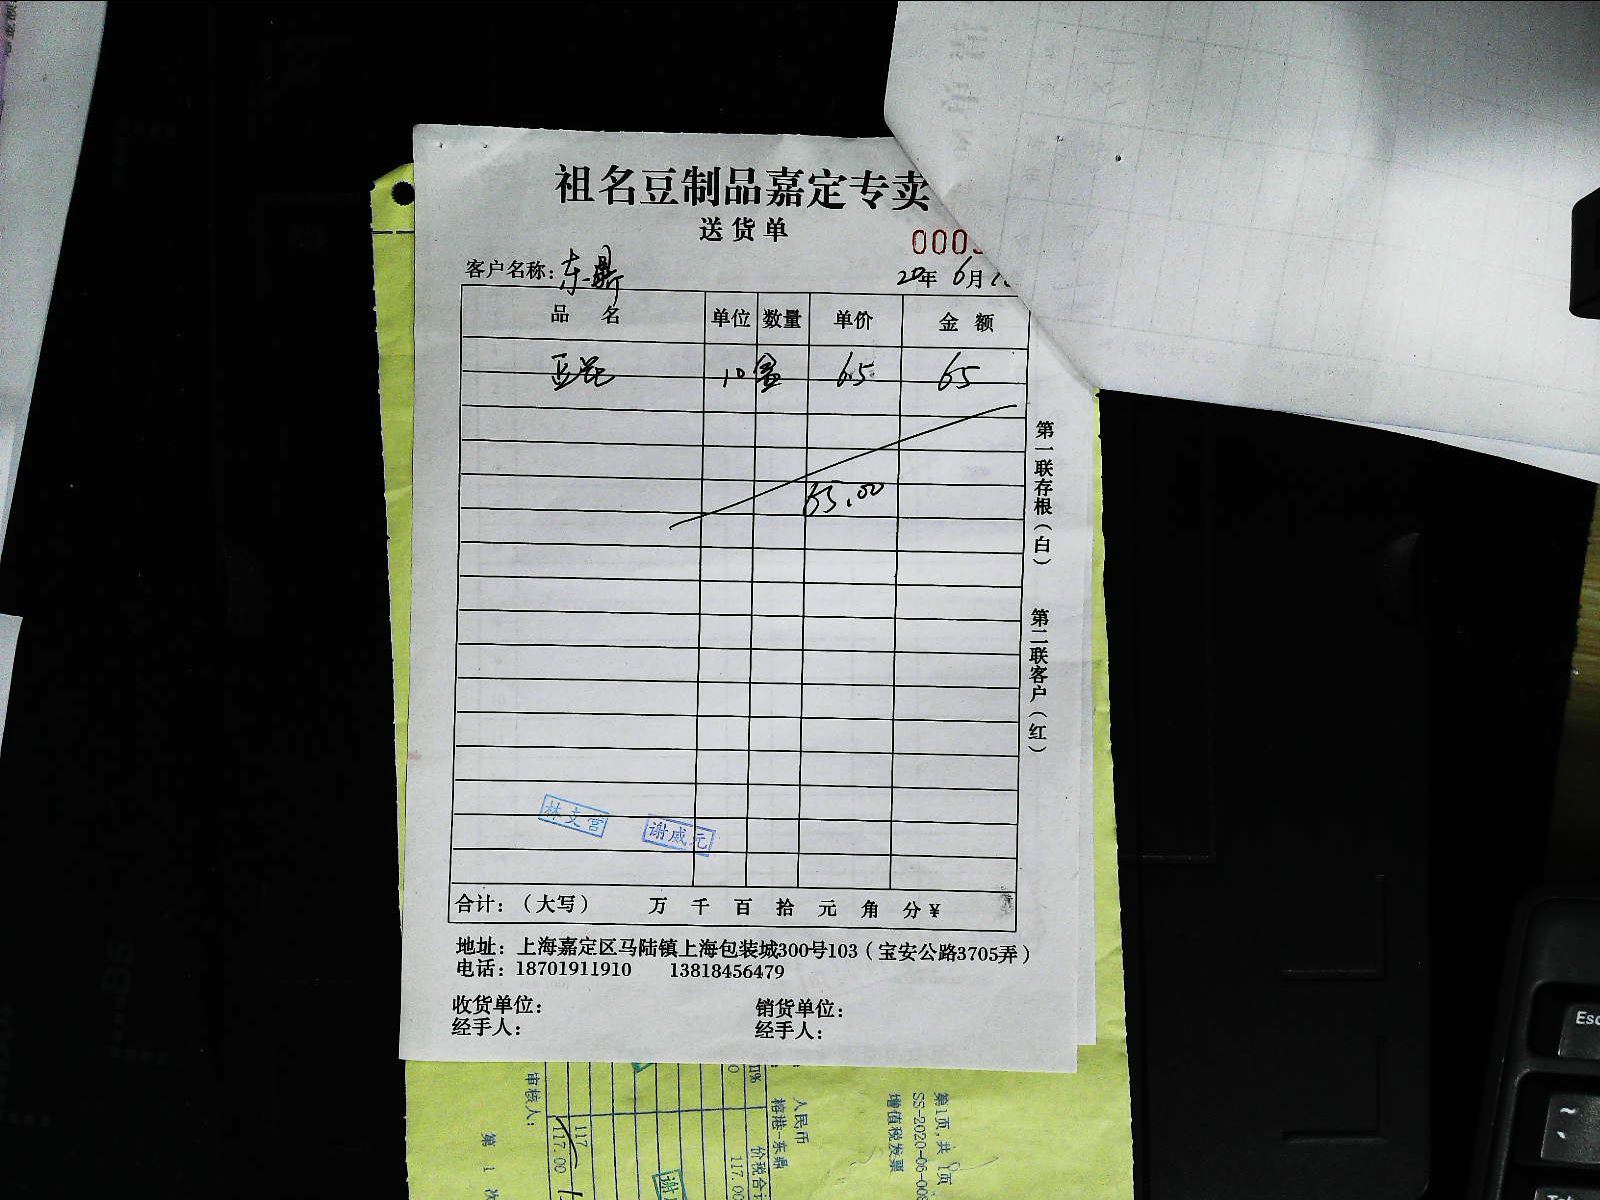 祖名豆制品嘉定专卖
送货单
000
客户名称：东鼎
20年 6月
品 名 单位 数量 单价 金 额
豆花 10 盒 6.5 65
65.00
第一联存根（白）
第二联客户（红）
林支营
谢威元
合计：（大写） 万 千 百 拾 元 角 分 ¥
地址：上海嘉定区马陆镇上海包装城300号103（宝安公路3705弄）
电话：18701911910 13818456479
收货单位： 销货单位：
经手人： 经手人：
审核人：
117
117.00
第 1 次
人民币
榕港-东鼎
价税合计
117.00
第1页,共 1页
SS-2020-06-00
增值税发票
Esc
~